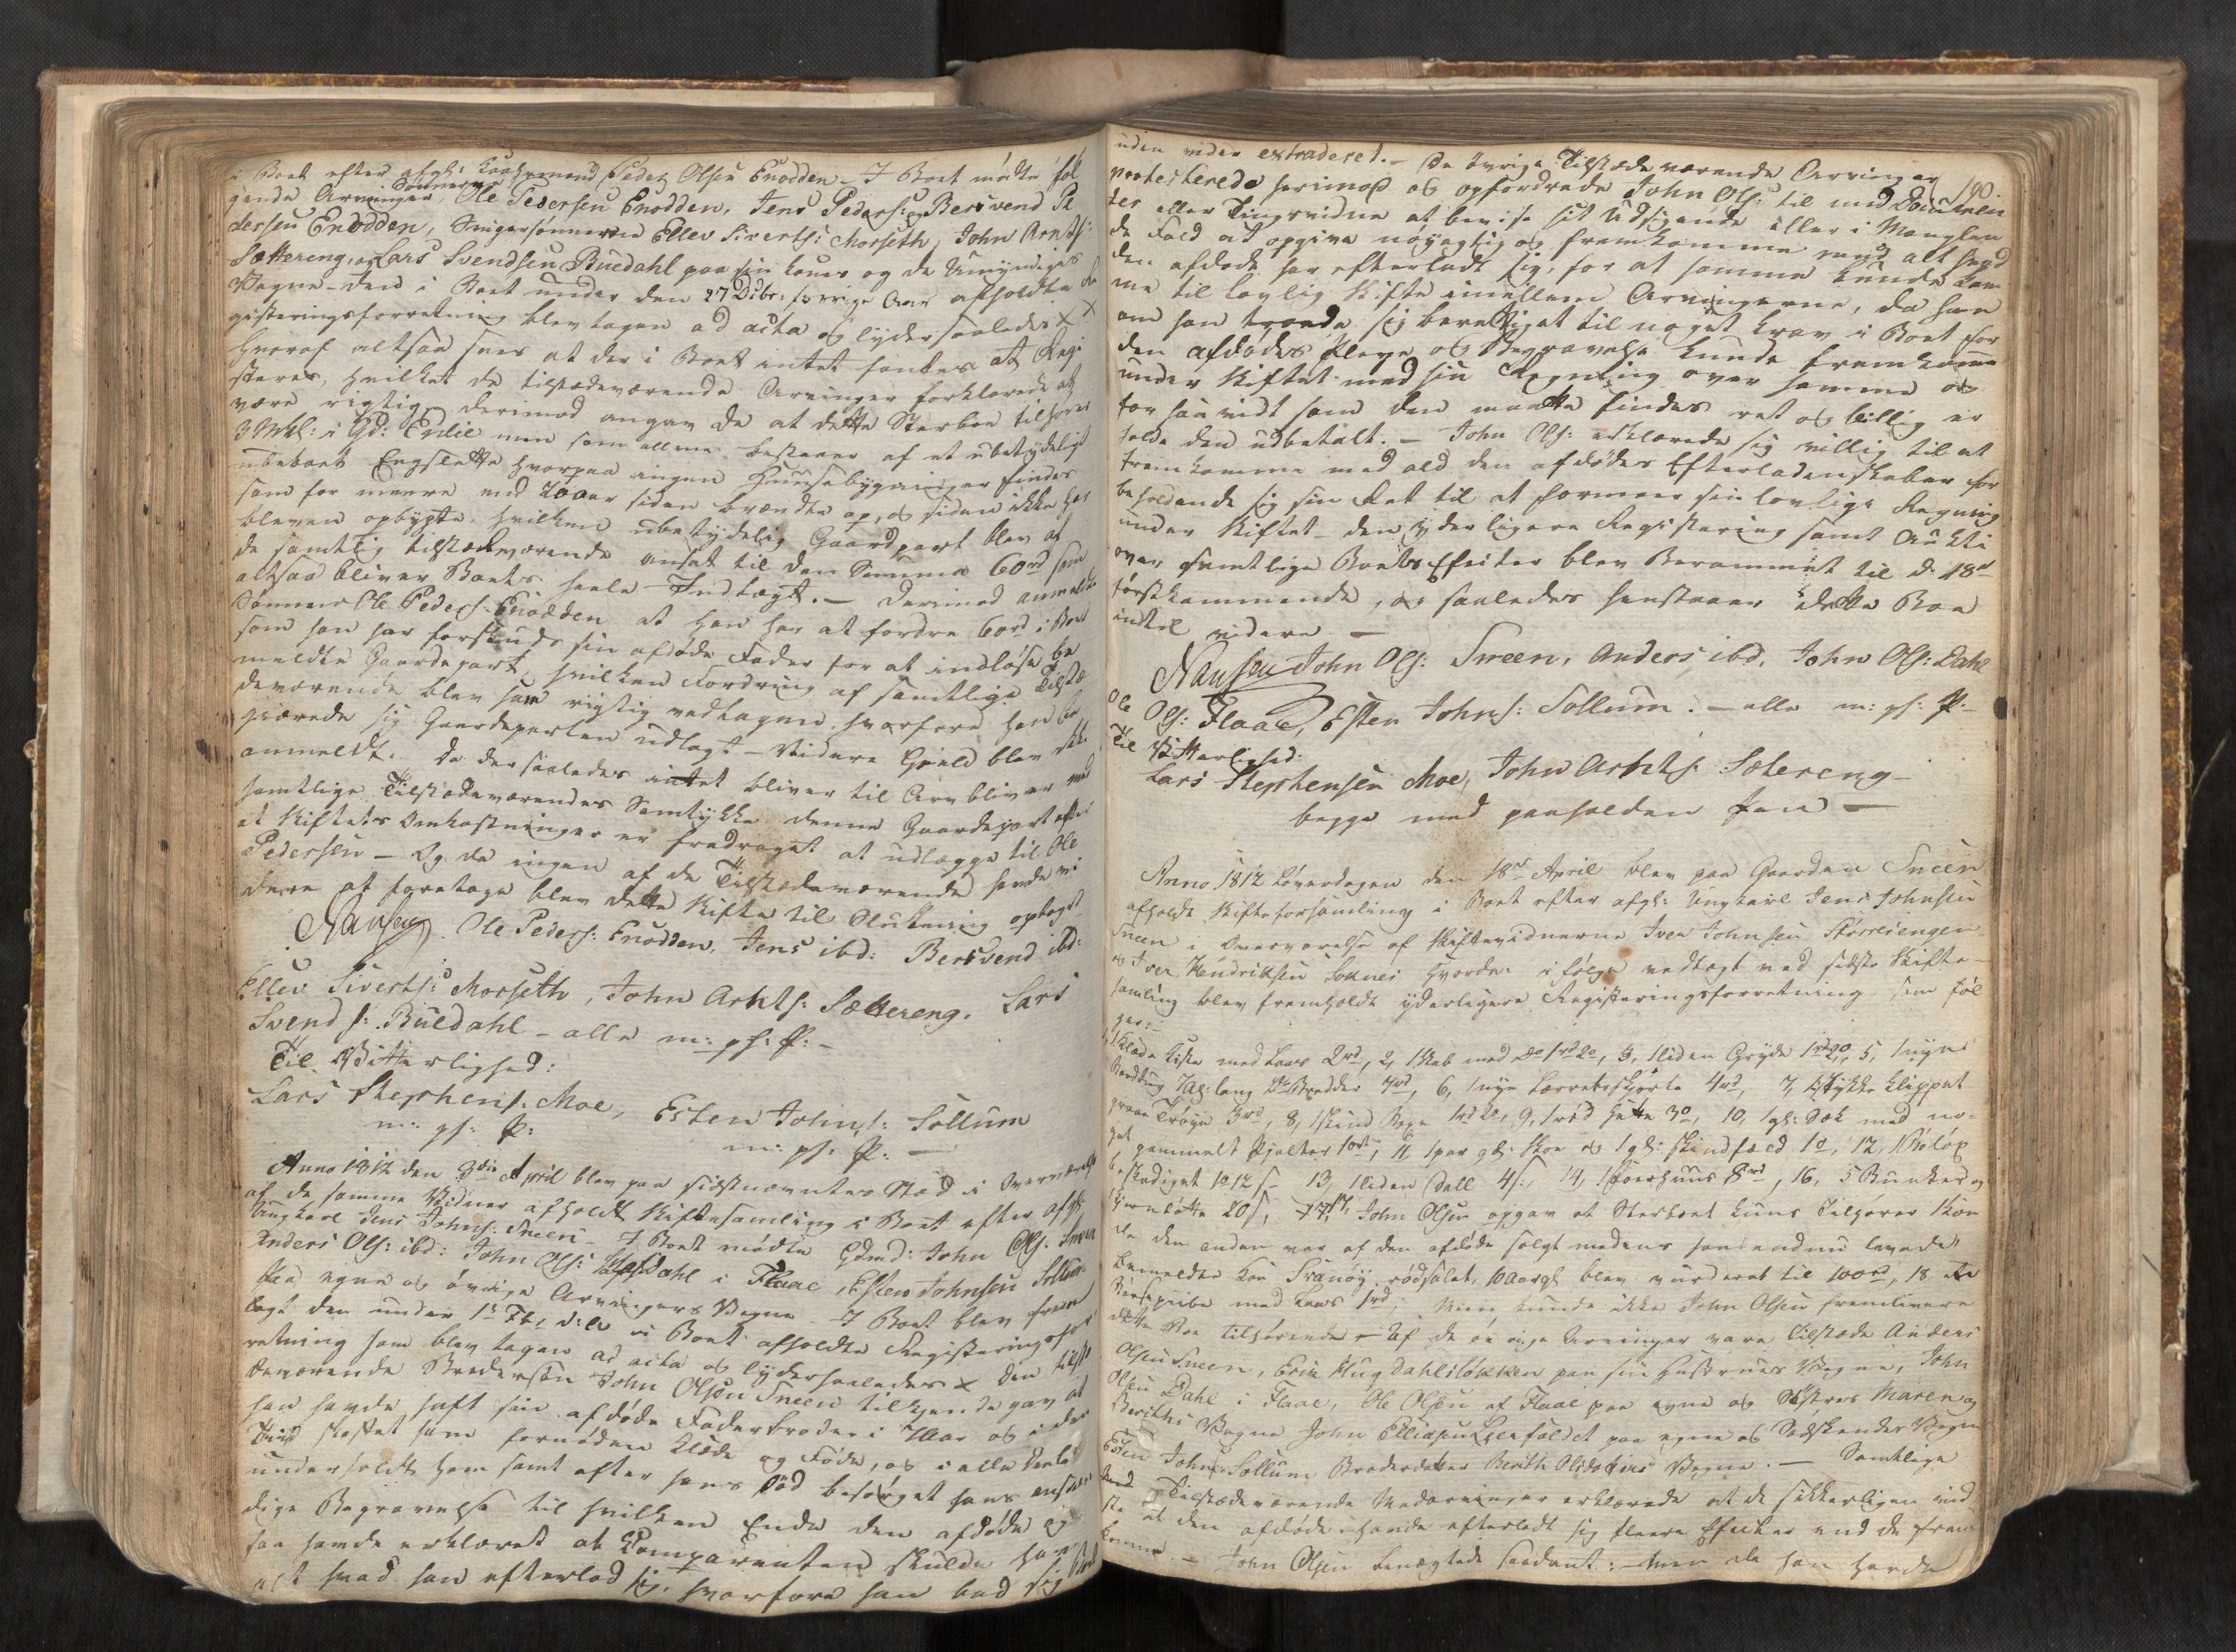 i Boet efter afgl: Huusmand Peder Olsen Enodden - I Boet mødte føl
gende Arvinger, Sønnerne Ole Pedersen Enodden, Jens Peders: og Bersvend Pe
dersen Enodden, Svigersønnerne Ellev Siverts: Morseth, John Arnts:
Sættereng, og Lars Svendsen Buedahl paa sin Kones og de Umyndiges
Vegne - den i Boet under den 27 Decbr: forrige Aar afholdte Re
gisteringsforretning blev tagen ad acta og lyder saaledes X
hvoraf altsaa sees at der i Boet intet fantes at Regi
steres, hvilket de tilstædeværende Arvinger forklarede at
være rigtig, derimod angav de at dette Sterboe tilhører
3 Mkl: i Gd: Endlie men som allene bestaaer af et ubetydeligt
ubeboet Engslette hvorpaa ingen Huusebygninger findes
som for meere end 20 Aar siden brændte op, og siden ikke har
bleven opbygte, hvilken ubetydelig Gaardpart blev af
de samtlig tilstædeværende ansat til den Summa 60 rd som
altsaa bliver Boets heele Indtægt. - Derimod anmeldte
Sønnen Ole Peders: Enodden at han har at fordre 60 rd i Boet
som han har forskudt sin afdøde Fader for at indløse be
meldte Gaardepart hvilken Fordring af samtlige Tilstæ
deværende blev som rigtig vedtagen, hvorfore han be
gjærede sig Gaardeparten udlagt - Videre Gjæld blev ikke
anmeldt. Da der saaledes intet bliver til Arv bliver med
samtlige Tilstædeværendes Samtykke denne Gaardepart efter
at Skiftets Omkostninger er fradraget at udlægge til Ole
Pedersen - Og da ingen af de Tilstædeværende havde vi
dere at foretage blev dette Skifte til Slutning optaget
Nansen Ole Peders: Enodden, Jens ibd: Bersvend ibd:
Ellev Siverts: Morseth, John Arnts: Sættereng. Lars
Svends: Buedahl - alle m: ph: P: -
Til Vitterlighed:
Lars Stephens: Moe, Esten Johns: Sollum
m: ph: P: m: ph: P: -
Anno 1812 den 3die April blev paa sidstnævntes Stæd i Overværelse
af de samme Vidner afholdt Skiftesamling i Boet efter afgl:
Ungkarl Jens Johns: Sneen - I Boet mødte Gdmd: John Ols: Sneen
Anders Ols: ibd: John Ols: Dahl i Flaae, Esten Johnsen Sollum
paa egne og øvrige Arvingers Vegne - I Boet blev frem
lagt den under 1te Fbr d: A: i Boet afholdte Registeringsfor
retning som blev tagen ad acta og lyder saaledes X Den tilstæ
deværende Brodersøn John Olsen Sneen tilkjendegav at
han havde haft sin afdøde Faderbroder i Aar og i den
Tiid skaffet ham fornøden Klæde og Føde, og i alle Deele
underholdt ham samt efter hans Død besørget hans anstæn
dige Begravelse til hvilken Ende den afdøde og
saa havde erklæret at Comparenten skulde have
alt hvad han efterlod sig, hvorfore han bad sig Boet
190.
uden videre extraderet. - De øvrige Tilstædeværende Arvinger
protesterede herimod og opfordrede John Ols: til med Documen
ter eller Tingsvidne at bevise sit Udsigende eller i Manglen
de Fald at opgive nøyagtig og fremkomme med alt hvad
den afdøde har efterladt sig, for at samme kunde kom
me til lovlig Skifte imellem Arvingerne, da han
om han troede sig berettiget til noget Krav i Boet for
den afdødes Pleye og Begravelse kunde fremkomme
under Skiftet med sin Regning over samme og
for saavidt som den maatte findes ret og billig er
holde den udbetalt. - John Ols: erklærede sig villig til at
fremkomme med ald den afdødes Efterladenskaber for
beholdende sig sin Ret til at formeere sin lovlige Regning
under Skiftet - den yderligere Registering samt Aukti
over samtlige Boets Efecter blev Berammet til d: 18de
førstkommende, og saaledes henstaaer dette Boe
indtil videre -
Nansen John Ols: Sneen, Anders ibd, John Ols: Dahl
Ole Ols: Flaae, Esten Johns: Sollum. - alle m: ph: P: -
Til Vitterlighed:
Lars Stephensen Moe, John Arnts: Sætereng -
begge med paaholden Pen -
Anno 1812 Løverdagen den 18de April blev paa Gaarden Sneen
afholdt Skifteforsamling i Boet efter afgl: Ungkarl Jens Johnsen
Sneen i Overværelse af Skiftevidnerne Iver Johnsen Størreiengen
og Iver Hendriksen Soknes hvorda i følge vedtægt ved sidste Skifte-
samling blev fremholdt yderligere Registeringsforretning som føl
ger: -
1, 1 Klæde Kiste med Laas 2 rd, 2, 1 Skab med do 1 rd 2 o, 3, 1 liden Gryde 1 rd 2 o, 5, 1 nyni
lang Bredder rd, 6, 1 nye Lærretsskjorte 4 rd, 7, 1 Stykke klippet
graae Trøye 3 rd, 8, 1 Skind 1 rd 2 o, 9, 1 rød Hætte 3 o, 10, 1 gl: Sæk med no-
get gammelt Pjalter 1 ort, 11, 1 par gl: Skoe og 1 gl: Skindfæld 1 o, 12, 1 Boløx
beskadiget 1 o 12 s - 13, 1 liden Dall 4 s:, 14, 1 Foerhuus 8 rd, 16, 5 Bunker og
Kjernbøtte 20 s, 17, John Olsen opgav at Sterboet kuns tilhører 1 Koe
da den anden var af den afdøde solgt medens han endnu levede,
bemeldte Koe Svanøy rødsidet, 10 Aargl: blev vurderet til 100 rd, 18 en
med Laas 1 rd; Meere kunde ikke John Olsen fremlevere
dette Boe tilhørende - Af de øvrige Arvinger vare Tilstæde Anders
Olsen Sneen, Erik Hugdahlsløkken paa sin Hustrues Vegne, John
Olsen Dahl i Flaae, Ole Olsen af Flaae paa egne og Søstres Maren og
Beriths Vegne John Ellevsen paa egne og Sødskendes Vegne
Esten Johns: Sollum Broderdatter Berith Olsdatters Vegne. - Samtlige
Tilstædeværende Medarvinger erklærede at de sikkerligen vid
ste at den afdøde havde efterladt sig fleere Efecter end de frem
komne - John Olsen benægtede saadant: - Men da han havde